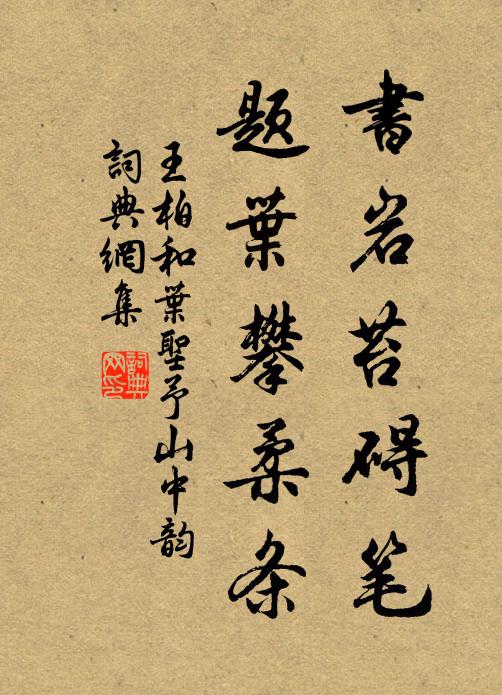 書岩苔碍笔
题葉攀柔条
王柏和葉聖予山中韵
詞典網集
詞典网印